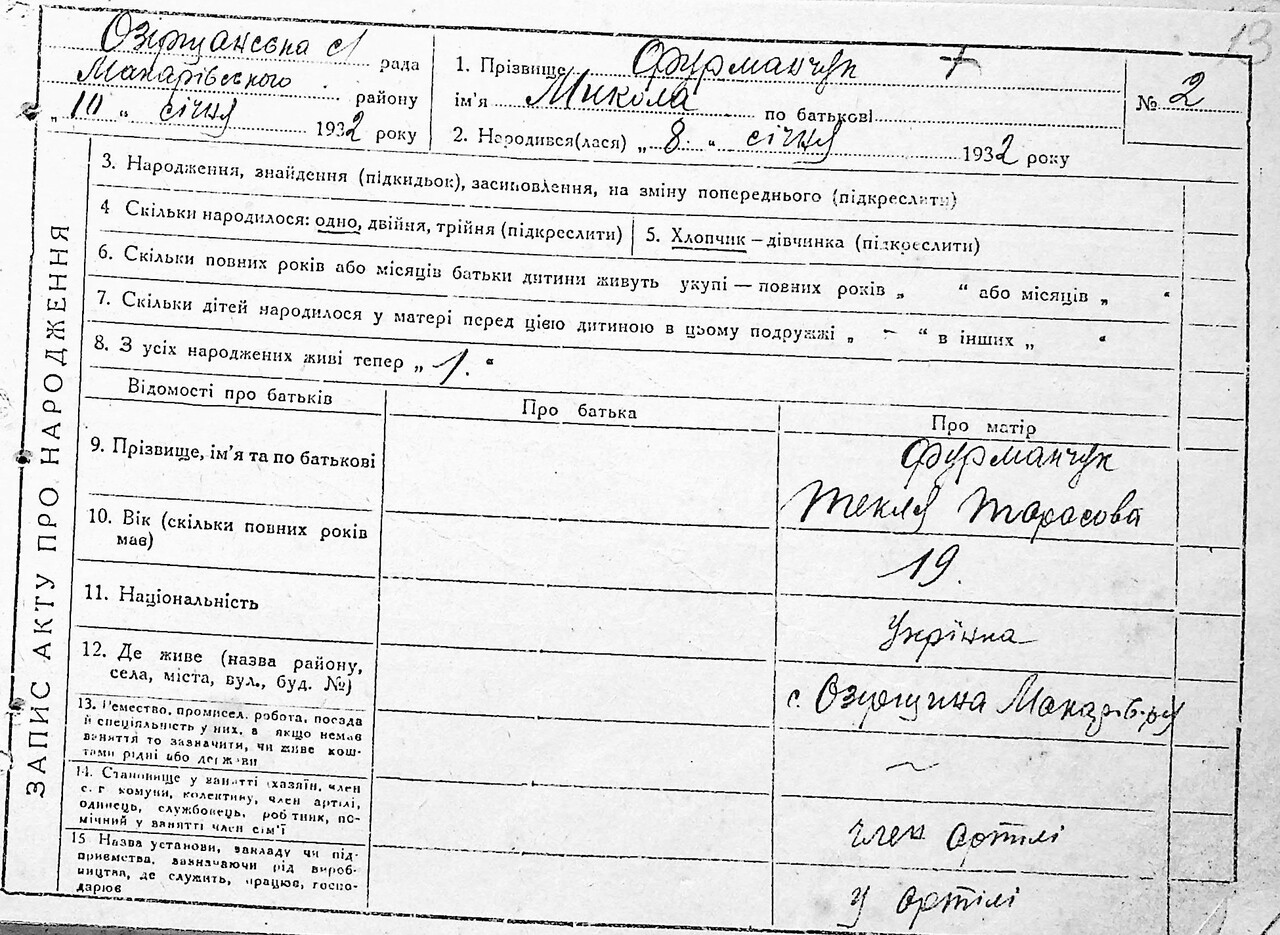 13
Озірщанська с/
рада
Макарівського
району
„ 10 “ січня 1932 року
1. Прізвище Фурманчук +
ім'я Микола по батькові
2. Народився(лася) „ 8 “ січня 1932 року
№ 2
ЗАПИС АКТУ ПРО НАРОДЖЕННЯ
3. Народження, знайдення (підкидьок), засиновлення, на зміну попереднього (підкреслити)
4 Скільки народилося: одно, двійня, трійня (підкреслити)
5. Хлопчик — дівчинка (підкреслити)
6. Скільки повних років або місяців батьки дитини живуть укупі — повних років „ “ або місяців „ “
7. Скільки дітей народилося у матері перед цією дитиною в цьому подружжі „ – “ в інших „ “
8. З усіх народжених живі тепер „ 1. “
Відомості про батьків
Про батька
Про матір
9. Прізвище, ім'я та по батькові
Фурманчук
Текля Тарасова
10. Вік (скільки повних років
має)
19.
11. Національність
Укрінка
12. Де живе (назва району,
села, міста, вул., буд. №)
с. Озірщина Макарів. р-у
13. Ремество, промисел, робота, посада
й спеціяльність у них, а якщо немає
заняття то зазначити, чи живе кош-
тами рідні або держави
~
14. Становище у занятті (хазяїн, член
с. г комуни, колективу, член артілі,
одинець, службовець, робітник, по-
мічний у занятті член сім'ї
член артілі
15 Назва установи, закладу чи під-
приємства, зазначаючи рід вироб-
ництва, де служить, працює, госпо-
дарює
у артілі